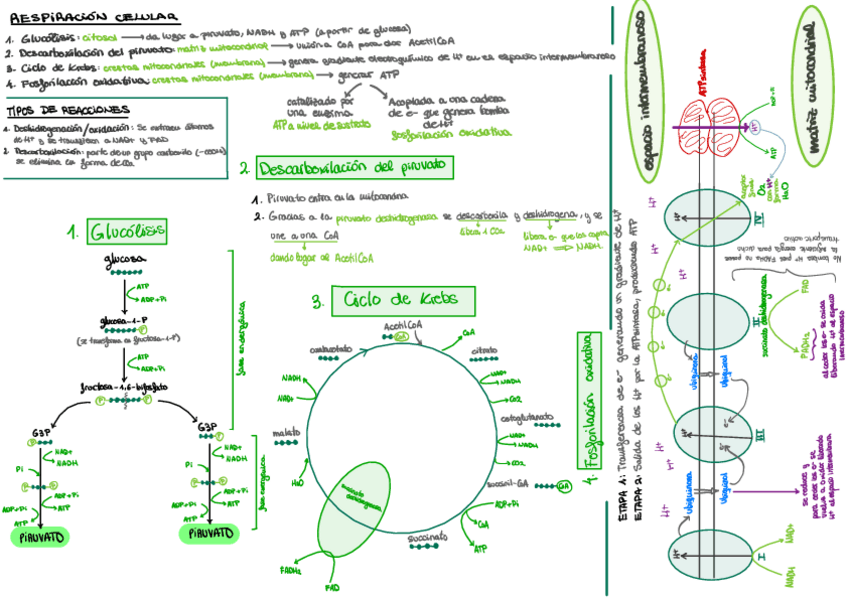 RESPIRACIÓN CELULAR
1. Glucólisis: citosol → da lugar a piruvato, NADH y ATP (a partir de glucosa)
2. Descarboxilación del piruvato: matriz mitocondrial → unión a CoA para dar Acetil CoA
3. Ciclo de Krebs: crestas mitocondriales (membrana) → genera gradiente electroquímico de H+ en es espacio intermembranoso
4. Fosforilación oxidativa: crestas mitocondriales (membrana) → generar ATP
catalizado por
una enzima
ATP a nivel de sustrato
Acoplada a una cadena
de e- que genera bomba
de H+
fosforilación oxidativa
TIPOS DE REACCIONES
1. Deshidrogenación/oxidación: se extraen átomos
de H+ y se transfieren a NAD+ y FAD
2. Descarboxilación: parte de un grupo carboxilo (-COOH)
se elimina en forma de CO2
2. Descarboxilación del piruvato
1. Piruvato entra en la mitocondria
2. Gracias a la piruvato deshidrogenasa se descarboxila y deshidrogena, y se
une a una CoA
libera 1 CO2
libera e- que los capta
NAD+ → NADH
dando lugar al Acetil CoA
1. Glucólisis
glucosa
ATP
ADP+Pi
glucosa-1-P
P
(se transforma en fructosa-1-P)
ATP
ADP+Pi
fructosa-1,6-bifosfato
P P
fase endergónica
G3P
P
NAD+
NADH
Pi
P P
ADP+Pi
ATP
ADP+Pi
ATP
PIRUVATO
G3P
P
NAD+
NADH
Pi
P P
ADP+Pi
ATP
ADP+Pi
ATP
PIRUVATO
fase exergónica
3. Ciclo de Krebs
Acetil CoA
CoA
CoA
oxalacetato
citrato
NAD+
NADH
CO2
cetoglutarato
NAD+
NADH
CO2
succinil-CoA
CoA
ADP+Pi
CoA
ATP
succinato
succinato
deshidrogenasa
FADH2
FAD
H2O
malato
NADH
NAD+
4. Fosforilación oxidativa
ETAPA 1: Transferencia de e- generando un gradiente de H+
ETAPA 2: Salida de los H+ por la ATPsintasa, produciendo ATP
espacio intermembranoso
matriz mitocondrial
ATPsintasa
ADP+Pi
H+
ATP
aceptor
final
O2
con H+
forma
H2O
IV
H+
H+
H+
H+
No bombea H+ pues FADH2 no posee
la suficiente energía para dicho
transporte activo
II
succinato deshidrogenasa
FAD
FADH2
al ceder los e- se oxida
liberando H+ al espacio
intermembranoso
ubiquinona
ubiquinol
e-
e-
III
H+
H+
H+
H+
ubiquinona
ubiquinol
se reduce y
para ceder los e- se
vuelve a oxidar liberando
H+ al espacio intermembrana
I
H+
NAD+
NADH